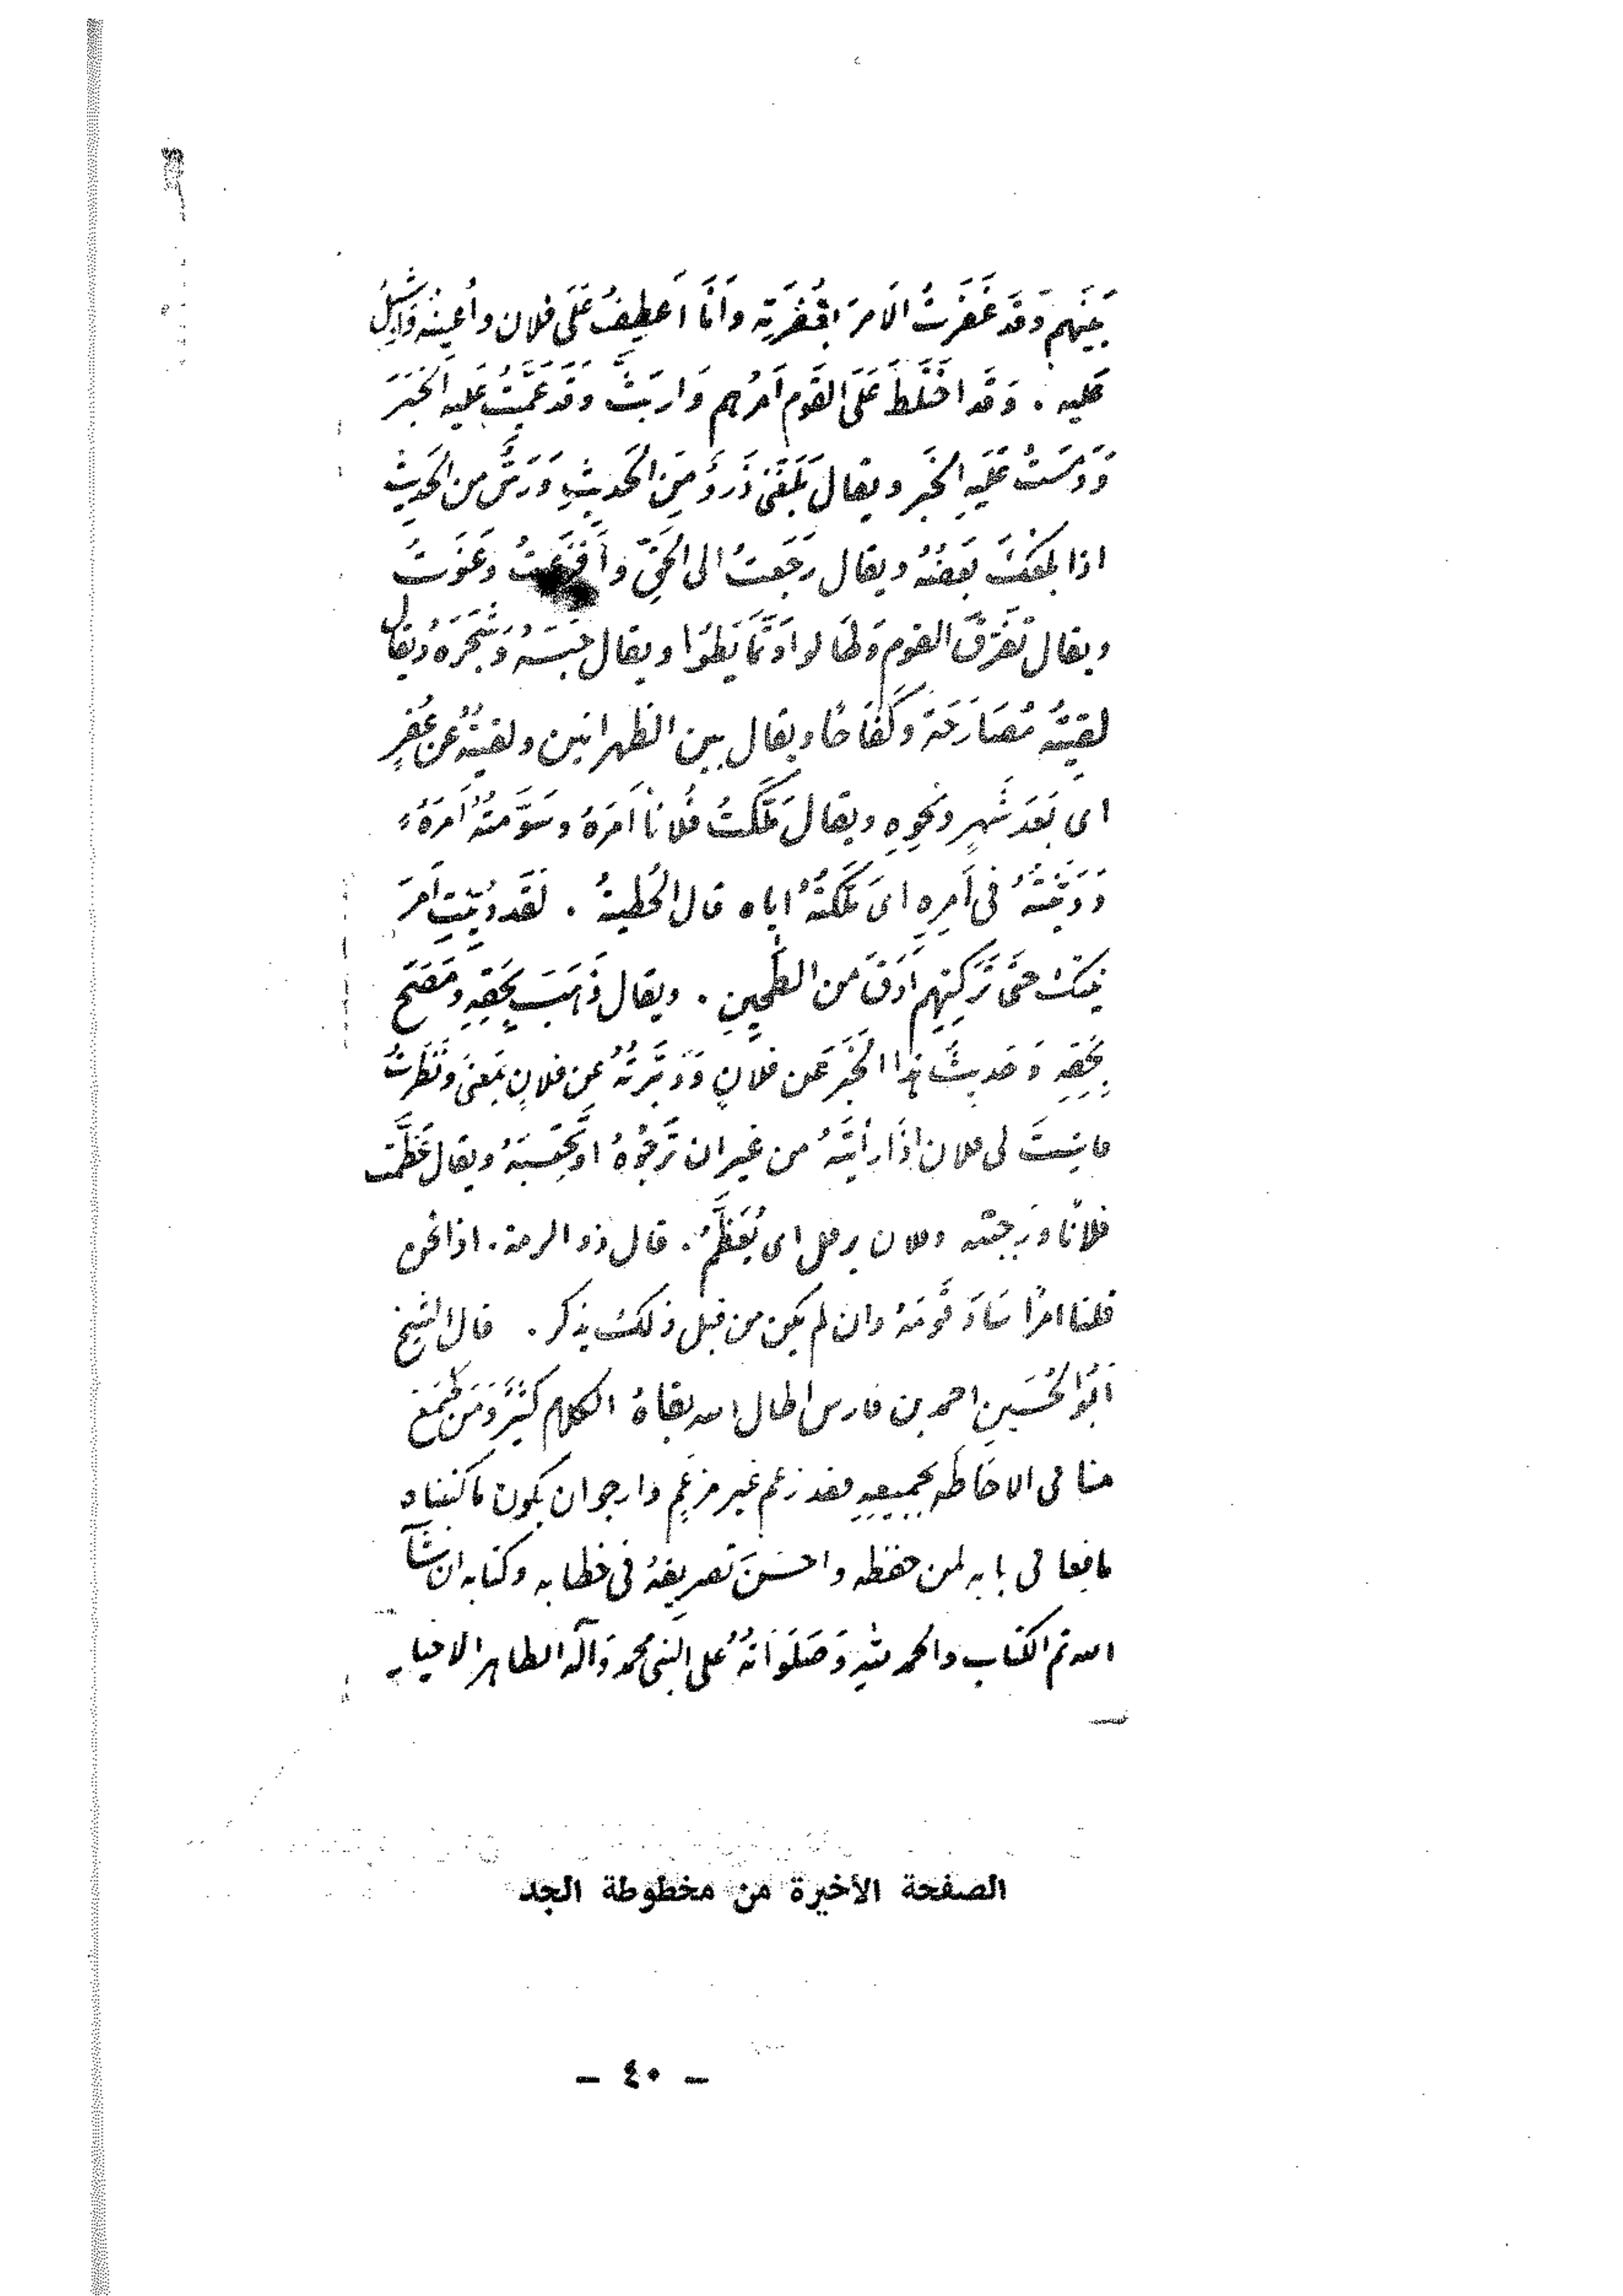 بَينَهم وَقَد غَفَرتُ الاَمرَ بِغُفرَتِهِ وَاَنَا اَعطِفُ عَلَى فلان واُعِينُه وَاُشبِلُ
عليه . وَقَد اختَلَطَ عَلَى القَوم اَمرُهم وَاربَثَّ وَقَد عَمَّيتُ عَلَيهِ الخَبَرَ
وَدَمَستُ عَلَيهِ الخَبَر ويقالَ بَلَغَنِى ذَروٌ مِنَ الحَديثِ وَرَسٌّ من الحَدِيثِ
اذا بلَغَكَ بَعضُهُ ويقال رَجَعتُ الى الحَقِّ وَاَ وَعَنَوتُ
ويقال تَفَرَّقَ القوم وَتَمَايَطُوا ويقال حَبَسَهُ وَشَجَرَهُ ويقال
لقِيتُهُ مُصَارَحَةً وَكِفَاحًا ويقال بين الظهرانَين ولقيتُهُ عن عُفرٍ
اى بَعَد شَهرٍ ونحوِهِ ويقال مَلَّكتُ فُلاناً اَمرَهُ وسَوَّمتُهُ اَمرَهُ
وَدَيَّنتُهُ فى اَمرِهِ اى مَلَّكتُهُ اياه قال الحُطيئةُ . لَقَد دُيِّنتِ اَمرَ
بَنيكِ حتَّى تَرَكتِهِم اَدَقَّ من الطَّحِينِ . ويقال ذَهَبَ بِحَقِّهِ وَمَصَحَ
بِحَقِّهِ وَحَديثُ هذا الخَبَر عَن فلانٍ وَدَبَّرتُهُ عن فلانٍ بمَعنى وَنَظَرتُ
مانِستَ لى فلان اِذَا رَاَيتَهُ من غير ان تَرجُوهُ او تَحتَسِبَهُ ويقال عَظَّمتُ
فلانًا ورَجَّبتُه وفلان يرجل اى يُعَظَّمُ . قال ذو الرمة . اذا نحن
قلنا امرًا سَادَ قَومَهُ وان لم يكن من قبل ذلك يذكر . قال الشيخ
اَبُو الحُسَينِ احمد بن فارس اطال الله بقاهُ الكلام كَثِيرٌ وَمَن طَمِعَ
منا فى الاحَاطَه بجَمِيعِهِ فقد زعَم غير مَزعَمٍ وارجو ان يكون ما كتبناه
نافعا فى بابه لمن حفظه واحسَنَ تصريفَهُ فى خطابه وكتابه ان شَآ
الله تم الكتاب والحمد للهِ وَصَلَوَاتُهُ على النَبى محمد وَآله الطاهر الاخيار
الصفحة الأخيرة من مخطوطة الجد
– ٤٠ –